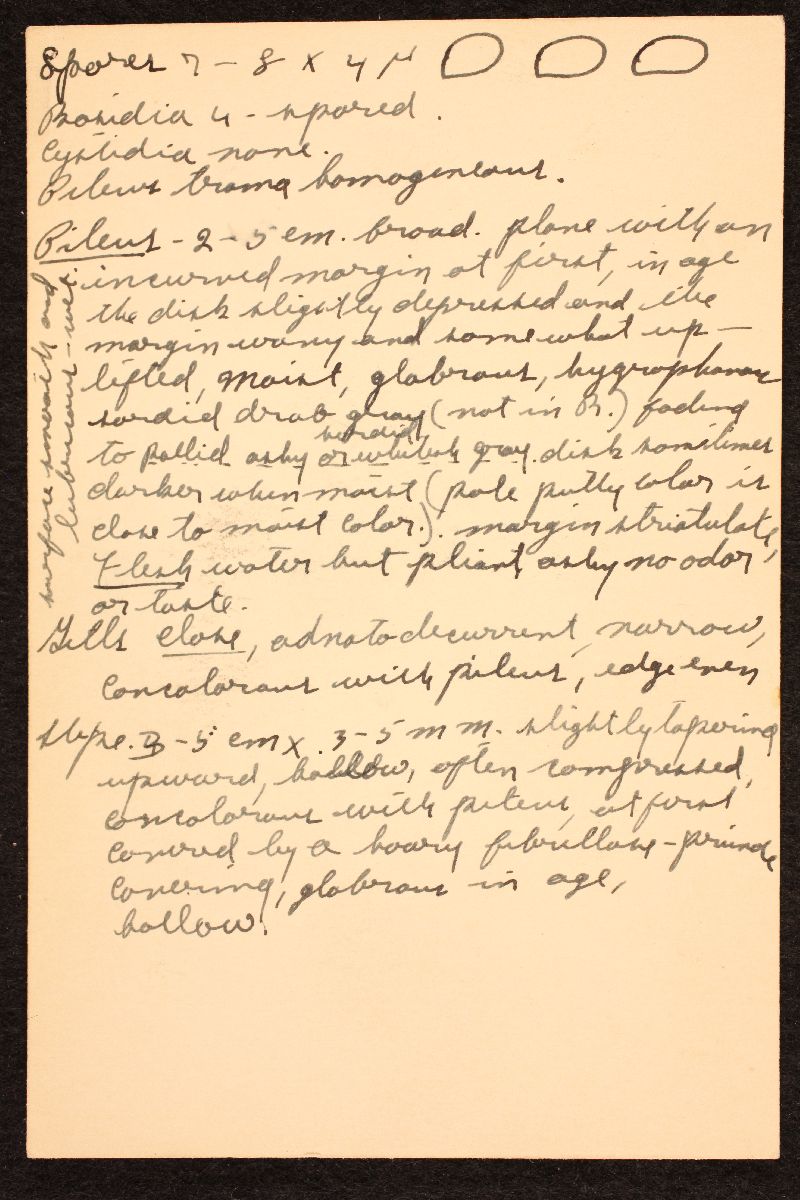 Spores 7 - 8 x 4 µ
Basidia 4 - spored.
Cystidia none.
Pileus trama homogeneous.
Pileus - 2 - 5 cm. broad. plane with an
incurved margin at first, in age
the disk slightly depressed and the
margin wavy and somewhat up-
lifted, moist, glabrous, hygrophanous
sordid drab gray (not in R.) fading
sordid
to pallid ashy or whitish gray. disk sometimes
darker when moist (pale putty color is
close to moist color.). margin striatulate,
Flesh water but pliant, ashy no odor
or taste.
surface smooth and
lubricous - wet.
Gills close, adnato decurrent, narrow,
concolorous with pileus, edge even
stipe. 3 - 5 cm x .3 - 5 mm. slightly tapering
upward, hollow, often compressed,
concolorous with pileus, at first
covered by a hoary fibrillose - pruinose
covering, glabrous in age,
hollow.